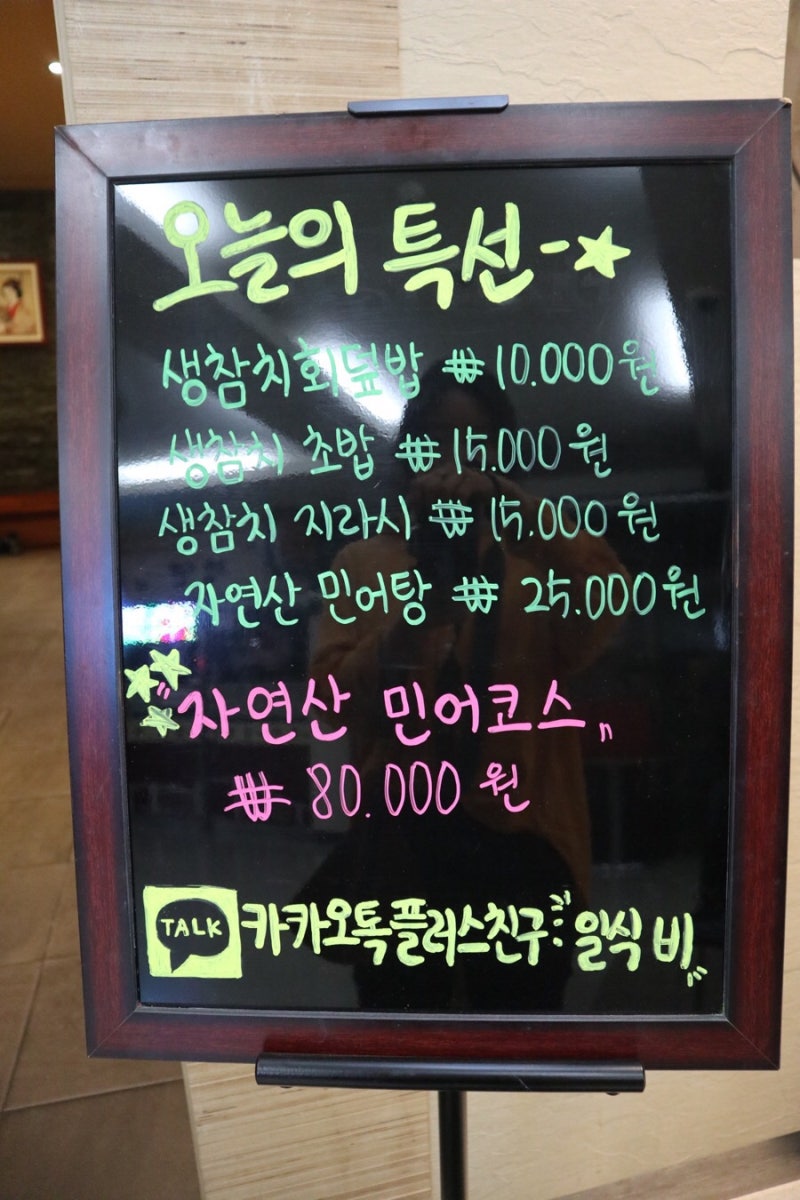 오늘의 특선-★
생참치회덮밥 ₩10.000원
생참치 초밥 ₩15.000원
생참치 지라시 ₩15.000원
자연산 민어탕 ₩ 25.000원
자연산 민어코스
₩ 80.000원
TALK 카카오톡플러스친구: 일식 비